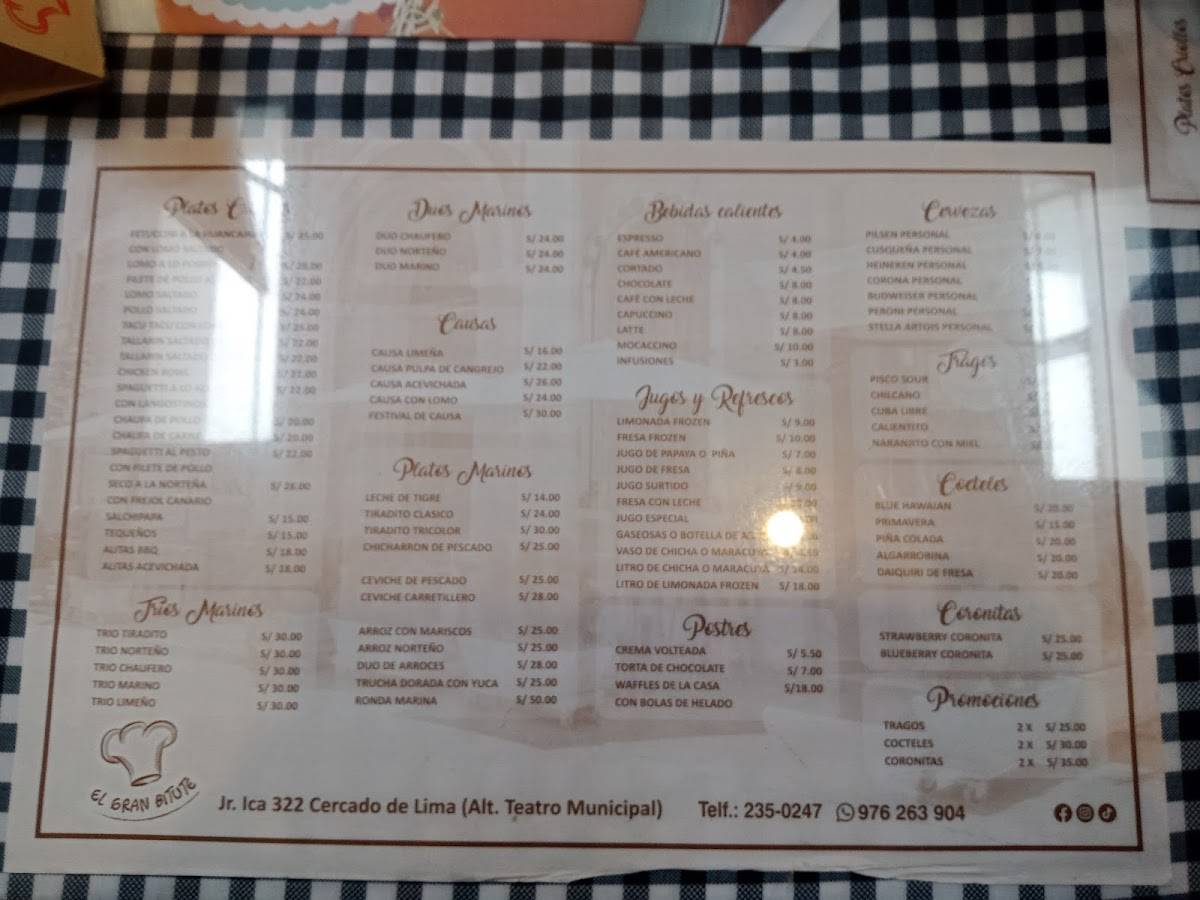 Platos
FETUCCINI A LA HUANCAINA S/ 25.00
CON LOMO SALTADO
LOMO A LO POBRE S/ 28.00
FILETE DE POLLO A S/ 22.00
LOMO SALTADO S/ 24.00
POLLO SALTADO S/ 24.00
TACU TACU CON LOMO S/ 25.00
TALLARIN SALTADO S/ 22.00
TALLARIN SALTADO S/ 22.00
CHICKEN BOWL S/ 22.00
SPAGUETTI A LO S/ 22.00
CON LANGOSTINOS
CHAUFA DE POLLO S/ 20.00
CHAUFA DE CARNE S/ 20.00
SPAGUETTI AL PESTO S/ 22.00
CON FILETE DE POLLO
SECO A LA NORTEÑA S/ 26.00
CON FREJOL CANARIO
SALCHIPAPA S/ 15.00
TEQUEÑOS S/ 15.00
ALITAS BBQ S/ 18.00
ALITAS ACEVICHADA S/ 18.00
Tríos Marinos
TRIO TIRADITO S/ 30.00
TRIO NORTEÑO S/ 30.00
TRIO CHAUFERO S/ 30.00
TRIO MARINO S/ 30.00
TRIO LIMEÑO S/ 30.00
EL GRAN BITUTE
Duos Marinos
DUO CHAUFERO S/ 24.00
DUO NORTEÑO S/ 24.00
DUO MARINO S/ 24.00
Causas
CAUSA LIMEÑA S/ 16.00
CAUSA PULPA DE CANGREJO S/ 22.00
CAUSA ACEVICHADA S/ 26.00
CAUSA CON LOMO S/ 24.00
FESTIVAL DE CAUSA S/ 30.00
Platos Marinos
LECHE DE TIGRE S/ 14.00
TIRADITO CLASICO S/ 24.00
TIRADITO TRICOLOR S/ 30.00
CHICHARRON DE PESCADO S/ 25.00
CEVICHE DE PESCADO S/ 25.00
CEVICHE CARRETILLERO S/ 28.00
ARROZ CON MARISCOS S/ 25.00
ARROZ NORTEÑO S/ 25.00
DUO DE ARROCES S/ 28.00
TRUCHA DORADA CON YUCA S/ 25.00
RONDA MARINA S/ 50.00
Bebidas calientes
ESPRESSO S/ 4.00
CAFÉ AMERICANO S/ 4.00
CORTADO S/ 4.50
CHOCOLATE S/ 8.00
CAFÉ CON LECHE S/ 8.00
CAPUCCINO S/ 8.00
LATTE S/ 8.00
MOCACCINO S/ 10.00
INFUSIONES S/ 3.00
Jugos y Refrescos
LIMONADA FROZEN S/ 9.00
FRESA FROZEN S/ 10.00
JUGO DE PAPAYA O PIÑA S/ 7.00
JUGO DE FRESA S/ 8.00
JUGO SURTIDO S/ 9.00
FRESA CON LECHE
JUGO ESPECIAL
GASEOSAS O BOTELLA DE
VASO DE CHICHA O MARACUYA
LITRO DE CHICHA O MARACUYA S/ 14.00
LITRO DE LIMONADA FROZEN S/ 18.00
Postres
CREMA VOLTEADA S/ 5.50
TORTA DE CHOCOLATE S/ 7.00
WAFFLES DE LA CASA S/18.00
CON BOLAS DE HELADO
Cervezas
PILSEN PERSONAL
CUSQUEÑA PERSONAL
HEINEKEN PERSONAL
CORONA PERSONAL
BUDWEISER PERSONAL
PERONI PERSONAL
STELLA ARTOIS PERSONAL
Tragos
PISCO SOUR
CHILCANO
CUBA LIBRE
CALIENTITO
NARANJITO CON MIEL
Cocteles
BLUE HAWAIAN S/ 20.00
PRIMAVERA S/ 15.00
PIÑA COLADA S/ 20.00
ALGARROBINA S/ 20.00
DAIQUIRI DE FRESA S/ 20.00
Coronitas
STRAWBERRY CORONITA S/ 25.00
BLUEBERRY CORONITA S/ 25.00
Promociones
TRAGOS 2 X S/ 25.00
COCTELES 2 X S/ 30.00
CORONITAS 2 X S/ 35.00
Jr. Ica 322 Cercado de Lima (Alt. Teatro Municipal) Telf.: 235-0247 976 263 904
Platos Criollos